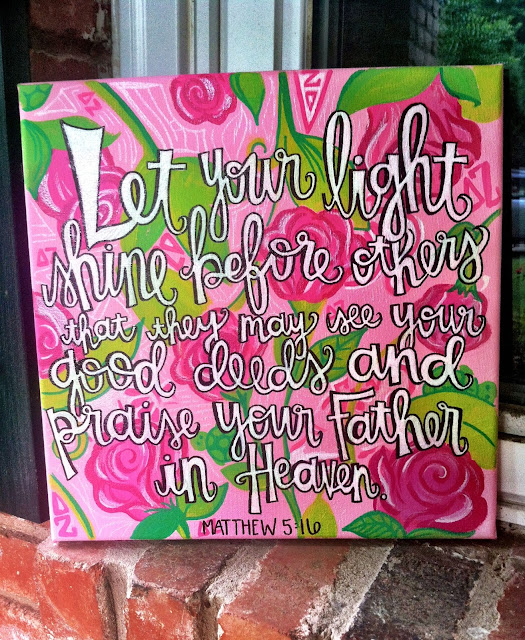 Let your light
shine before others
that they may see your
good deeds and
praise your Father
in Heaven.
MATTHEW 5:16